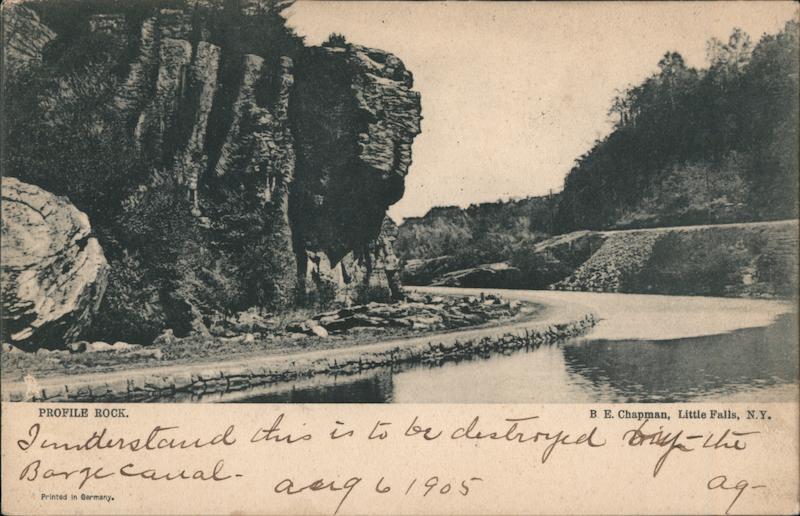 PROFILE ROCK.
B E. Chapman, Little Falls, N.Y.
I understand this is to be destroyed by the
Barge Canal -
Aug 6 1905
ag-
Printed in Germany.